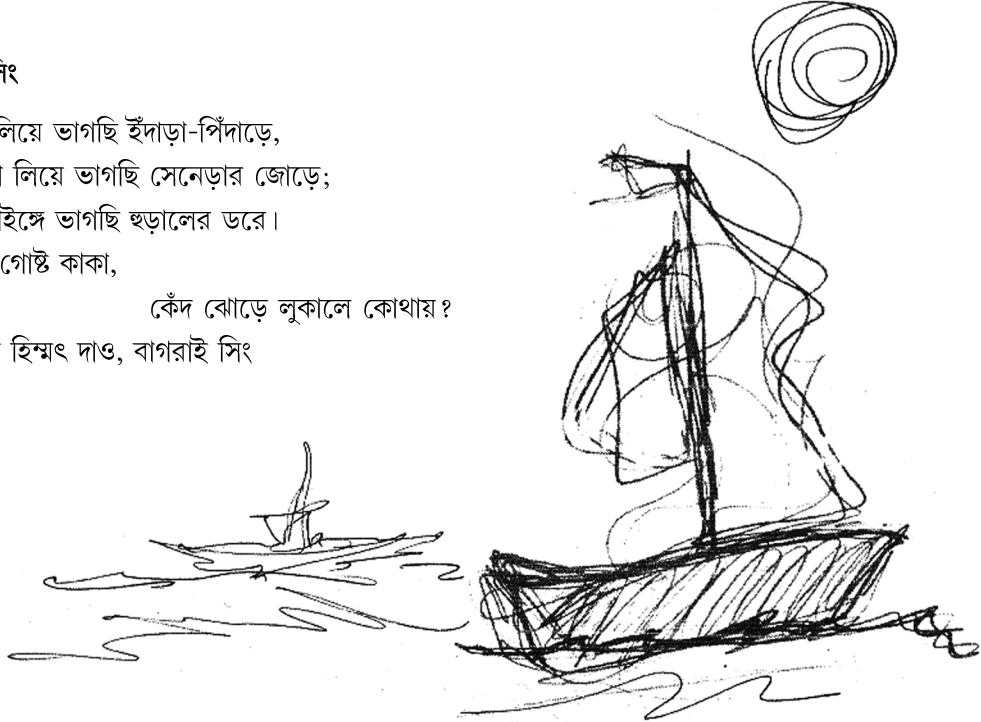 লিয়ে ভাগছি ইঁদাড়া-পিঁদাড়ে,
লিয়ে ভাগছি সেনেড়ার জোড়ে;
ভাগছি হুড়ালের ডরে।
গোষ্ট কাকা,
কেঁদ ঝোড়ে লুকালে কোথায়?
হিম্মৎ দাও, বাগরাই সিং